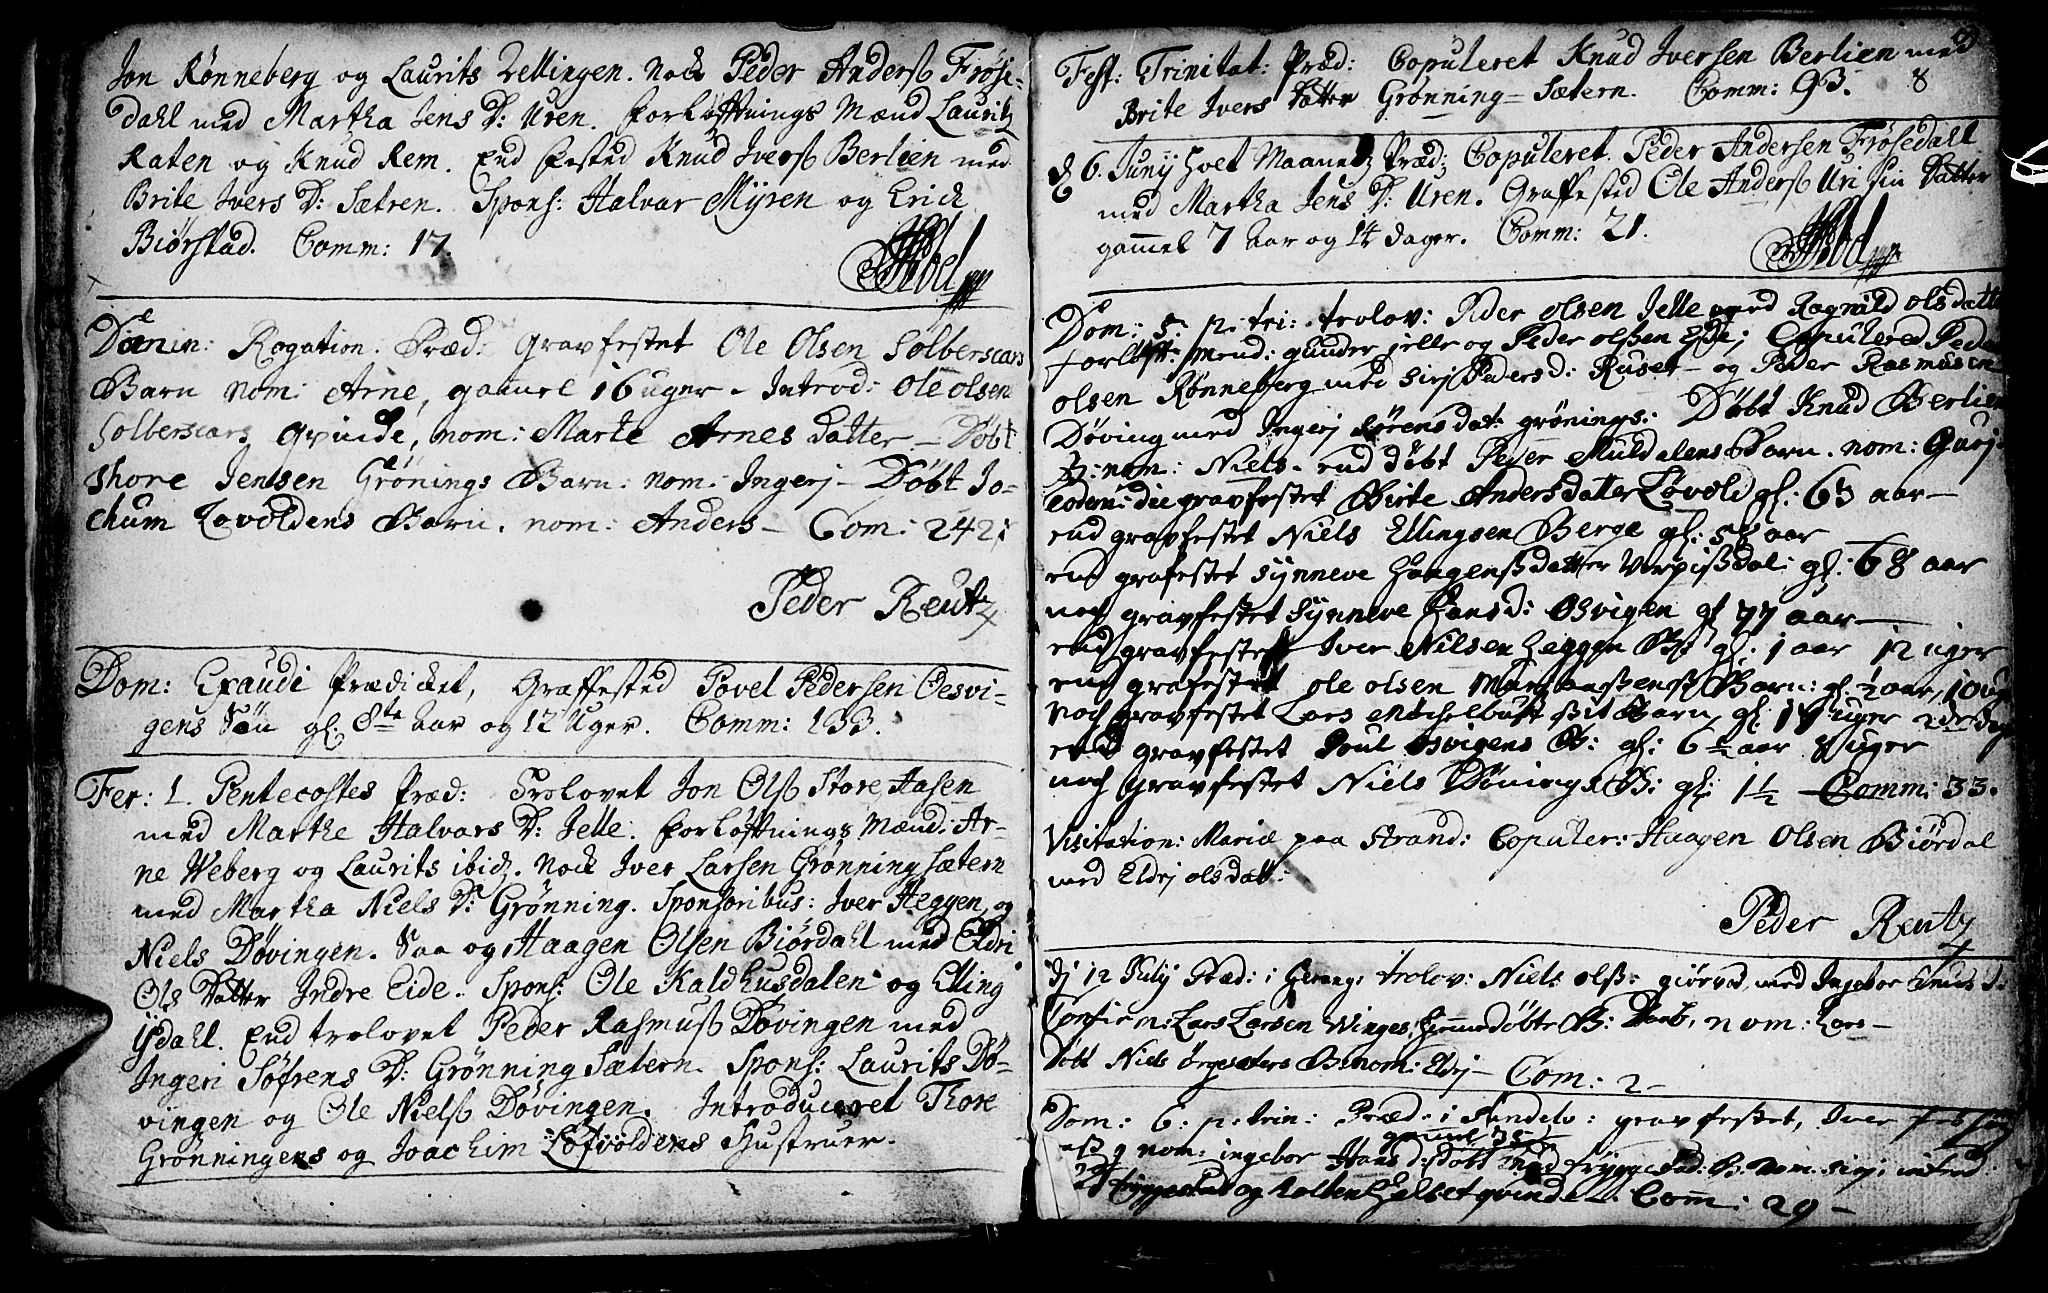 Jon Rønneberg og Laurits Relling en. Nock Peder Anderß Frøse-
dahl med Martha Jens D: Uren. Forløftnings Mænd Lauritz
Raten og Knud Rem. End fested Knud Iverß Berlien med
Brite Ivers D: Sætren. Spons: Halvar Myren og Erich
Biørstad. Comm: 17.
Abel
Domin: Rogation. Præd: Gravfestet Ole Olsen Solberscars
Barn nom: Arne, gamel 16 uger. Introd: Ole olsen
Solberscars qvinde, nom: Marte Arnes datter – Døbt
thore Jensen Grønings Barn: nom. Ingerj – Døbt Jo-
chum Lovoldens Barn. nom: Anders – Com: 242
Peder Reutz
Dom: Exaudi Prædicket, Graffested Povel Pedersen Oesvi-
gens Søn gl. 8te Aar og 12 Uger. Comm: 133.
Fer: 1. Pentecostes Præd: Trolovet Jon Olß Store Hasen
med Marthe Halvars D: Jelle. Forløftnings Mænd: Ar-
ne Weberg og Laurits ibid. Nock Iver Larsen Grønning sætern
med Martha Niels D: Grønning. Sponsoribus: Iver Heggen og
Niels Døvingen. Saa og Haagen Olsen Biørdahl med Eldri
Ols Datter Indre Eide. Spons: Ole Kaldhusdalen og Elling
Ÿsdahl. End trolovet Peder Rasmusß Døvingen med
Ingeri Søfrens D: Grønning Sætern. Spons: Laurits Dø-
vingen og Ole Nielß Døvingen. Introduceret Thore
Grønningens og Joachim Løfvoldens Hustruer.
Fest: Trinitat: Præd: Copuleret Knud Iversen Berlien med
Brite Ivers Datter Grønning-Sætern. Comm: 93.
8
d 6. Junij holt Maanetz Præd: Copuleret Peder Andersen Frøsedall
med Martha Jens D: Uren. Graffested Ole Anderß Uri sin Datter
gammel 7 Aar og 14 dager. Comm: 21.
Abel
Dom: 5: p: tri: trolov: Peder olsen Jelle med Ragnild olsdatte
forløft: mend: gunder jelle og Peder olßen Eide; Copulered Peder
olsen Rønneberg med sirj Pedersd: Ruset – og Peder Rasmusen
Døving med Ingerj Sørensdat: grønings: Døbt Knud Berlien
B: nom: Niels. end døbt Peder Muldalens Barn. nom: Gurj.
eodem: die gravfestet Birte Andersdatter Løvold gl: 63 aar –
end gravfestet Niels Ellingsen Berge gl: 58 aar
end grafestet synneve Haagensdatter Verpisdal: gl: 68 aar
noch gravfestet synneve Hansd: Osvigen gl 77 aar –
end gravfestet Iver Nilsen Heggen B: gl: 1 aar 12 uger
end grafestet ole olsen Barn: gl. ½ aar, 10 ug
noch gravfestet Lars sit Barn, gl. uger 2
end gravfestet Poul osvigens B: gl: 6 ½ aar 8 uger
noch gravfestet Niels Dønings B: gl: 1½ – Comm: 33.
Visitation: Mariæ paa Strand: Copuler: Haagen Olsen Biørdal
med Eldrj olsdatt:
Peder Reutz
Dj 12 Julij Præd: i Gerang: trolov: Niels olß: giørvad, med Ingebor Knuts D.
Confirm: Lars Larsen Winges, Hiemmedøbte B: Daab, nom: Lars –
Døbt Niels B: nom: Eldrj – Com: 2 –
Dom: 6: p: trin: Præd: i Sundelv: gravfestet, Iver
nom: ingebor Hansd: gamel 75 døbt frøggestad: B. nom: sirj: introd.
og Helset qvinde. Com: 29 –